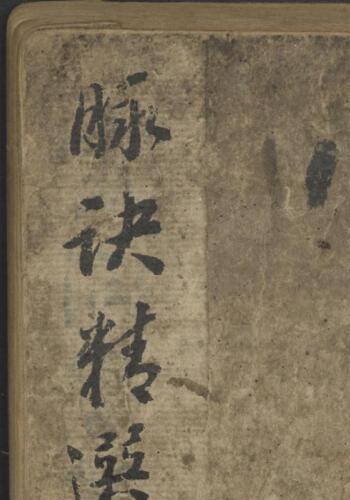 脉訣精選